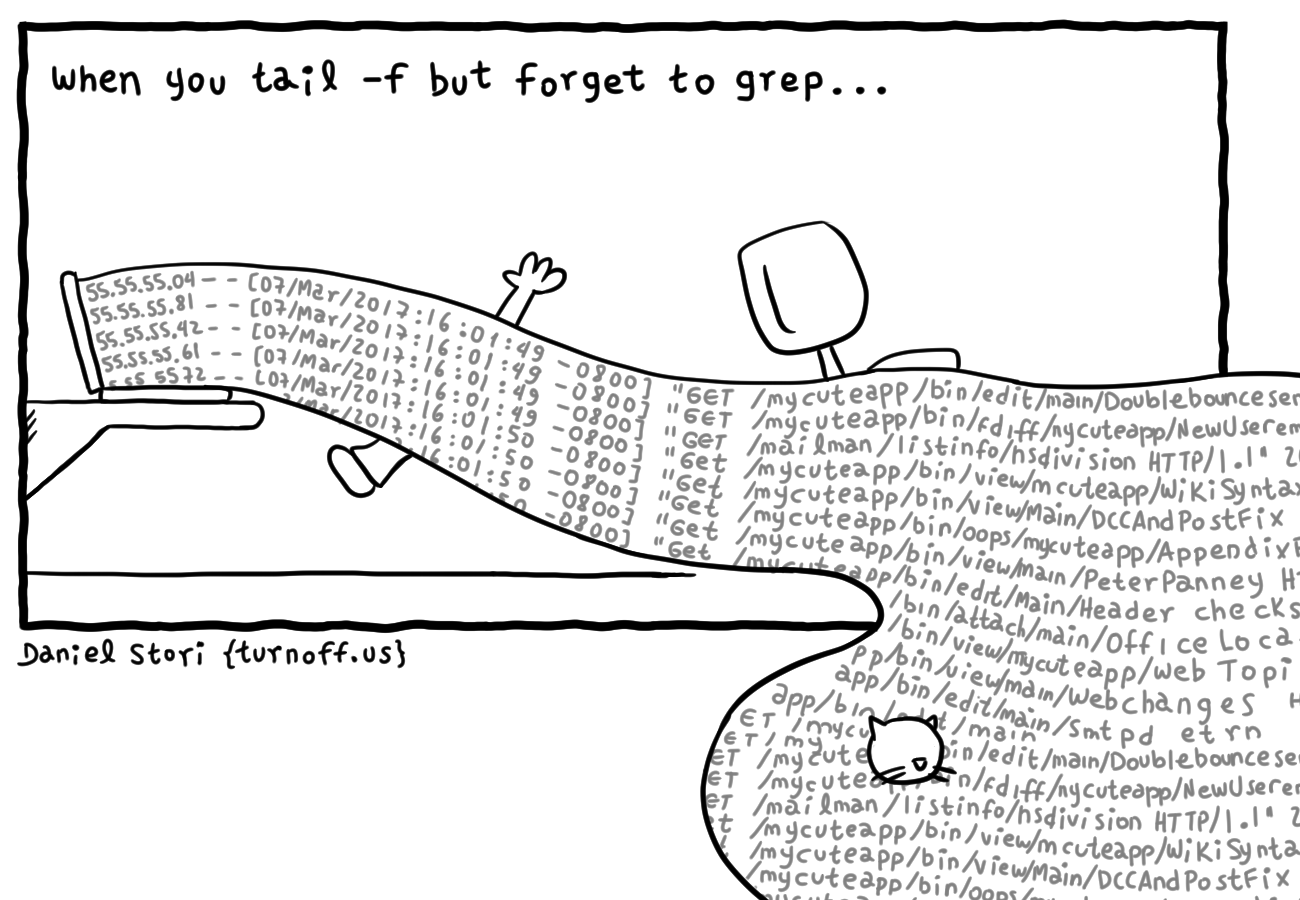 when you tail -f but forget to grep...
55.55.55.04 - - [07/Mar/2017:16:01:49 -0800] "GET /mycuteapp/bin/edit/main/Doublebounceser
55.55.55.81 - - [07/Mar/2017:16:01:49 -0800] "GET /mycuteapp/bin/rdiff/nycuteapp/NewUserem
55.55.55.42 - - [07/Mar/2017:16:01:49 -0800] "GET /mailman/listinfo/hsdivision HTTP/1.1" 2
55.55.55.61 - - [07/Mar/2017:16:01:49 -0800] "Get /mycuteapp/bin/view/mcuteapp/WikiSyntax
55 5572 - - [07/Mar/2017:16:01:50 -0800] "Get /mycuteapp/bin/view/Main/DCCAndPostFix
/mar/2017:16:01:50 -0800] "Get /mycuteapp/bin/oops/mycuteapp/Appendix
16:01:50 -0800] "Get /mycuteapp/bin/view/main/PeterPanney H
50 -0800] "Get /mycuteapp/bin/edit/Main/Header checks
/bin/attach/main/Office Loca
/bin/view/mycuteapp/web Topi
pp/bin/view/main/Webchanges
app/bin/edit/main/Smtpd etrn
app/bin/edit/main
ET /mycu
ET /mycute bin/edit/main/Doublebounceser
ET /mycutea n/fdiff/nycuteapp/NewUserem
ET /mailman/listinfo/hsdivision HTTP/1.1" 2
t /mycuteapp/bin/view/mcuteapp/WikiSynta
/mycuteapp/bin/view/Main/DCCAndPostFix
/mycuteapp/bin/oops/
Daniel Stori {turnoff.us}